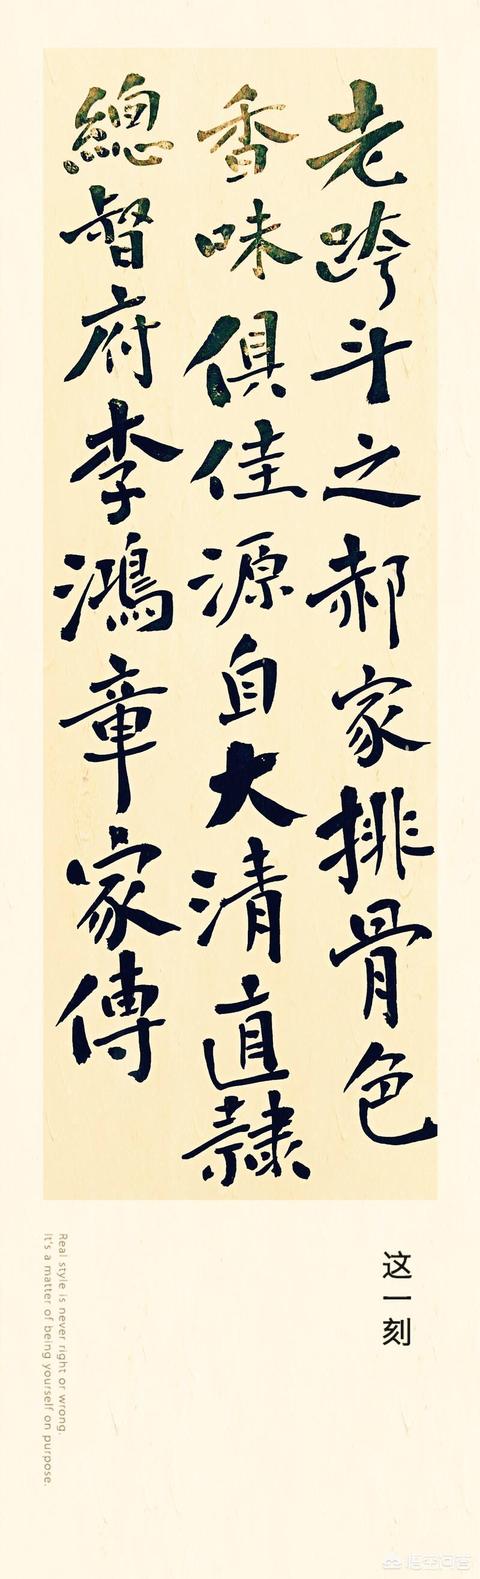 老跨斗之郝家排骨色
香味俱佳源自大清直隸
總督府李鴻章家傳
这一刻
Real style is never right or wrong.
It's a matter of being yourself on purpose.
悟空问答